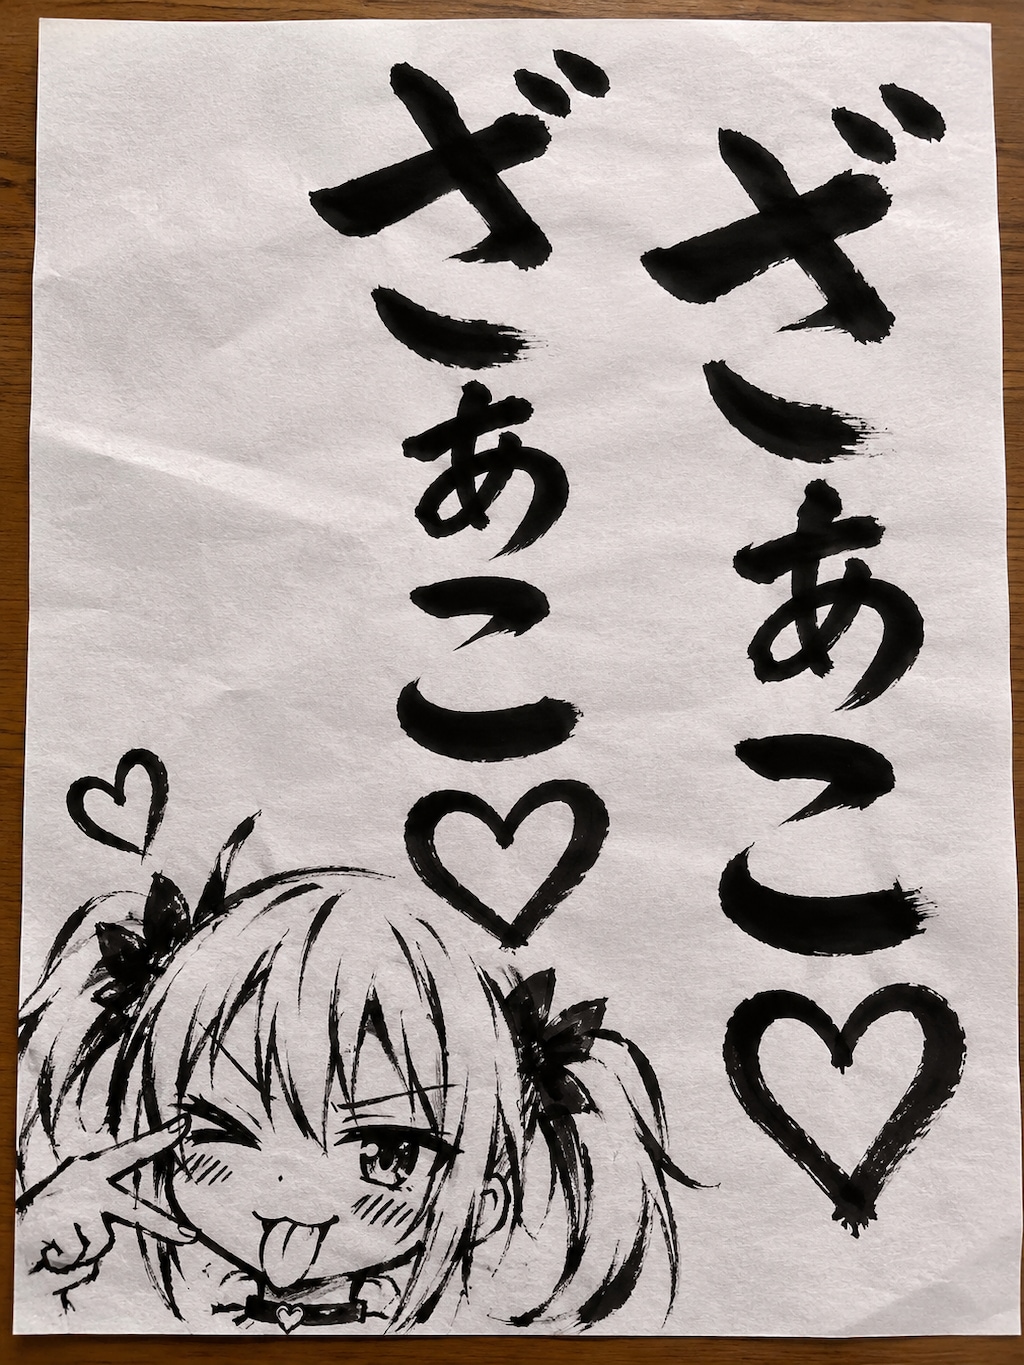 ざぁこ♡
ざぁこ♡